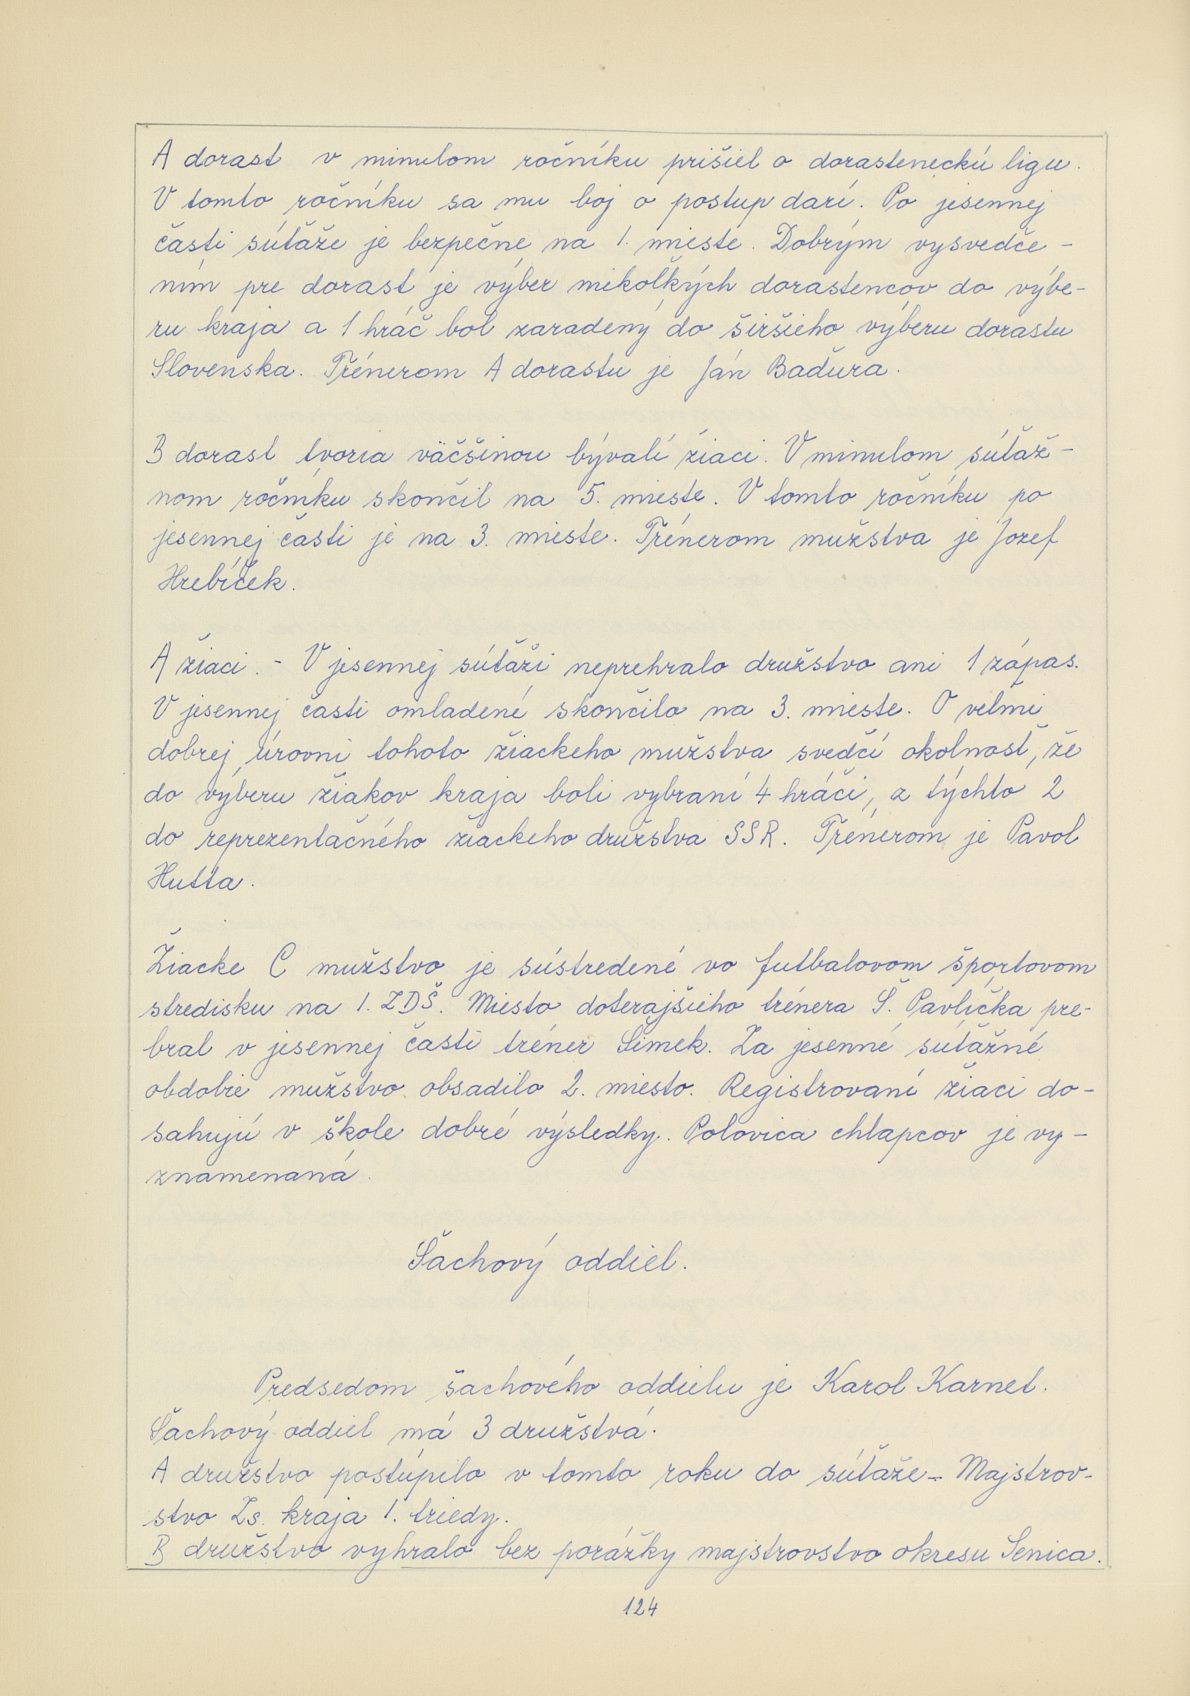 A dorast v minulom ročníku prišiel o dorasteneckú ligu.
V tomto ročníku sa mu boj o postup darí. Po jesennej
časti súťaže je bezpečne na 1. mieste. Dobrým vysvedče-
ním pre dorast je výber mikoľkých dorastencov do výbe-
ru kraja a 1 hráč bol zaradený do širšieho výberu dorastu
Slovenska. Trénerom A dorastu je Ján Baďura.
B dorast tvoria väčšinou bývalí žiaci. V minulom súťaž-
nom ročníku skončil na 5. mieste. V tomto ročníku po
jesennej časti je na 3. mieste. Trénerom mužstva je Jozef
Hrebíček.
A žiaci. - V jesennej súťaži neprehralo družstvo ani 1 zápas.
V jesennej časti omladené skončilo na 3. mieste. O veľmi
dobrej úrovni tohoto žiackeho mužstva svedčí okolnosť, že
do výberu žiakov kraja boli vybraní 4 hráči, z týchto 2
do reprezentačného žiackeho družstva SSR. Trénerom je Pavol
Hutta.
Žiacke C mužstvo je sústredené vo futbalovom športovom
stredisku na 1. ZDŠ. Miesto doterajšieho trénera Š. Pavlíčka pre-
bral v jesennej časti tréner Šimek. Za jesenné súťažné
obdobie mužstvo obsadilo 2. miesto. Registrovaní žiaci do-
sahujú v škole dobré výsledky. Polovica chlapcov je vy-
znamenaná.
Šachový oddiel.
Predsedom šachového oddielu je Karol Karnet.
Šachový oddiel má 3 družstvá.
A družstvo postúpilo v tomto roku do súťaže - Majstrov-
stvo Zs. kraja 1. triedy.
B družstvo vyhralo bez porážky majstrovstvo okresu Senica.
124